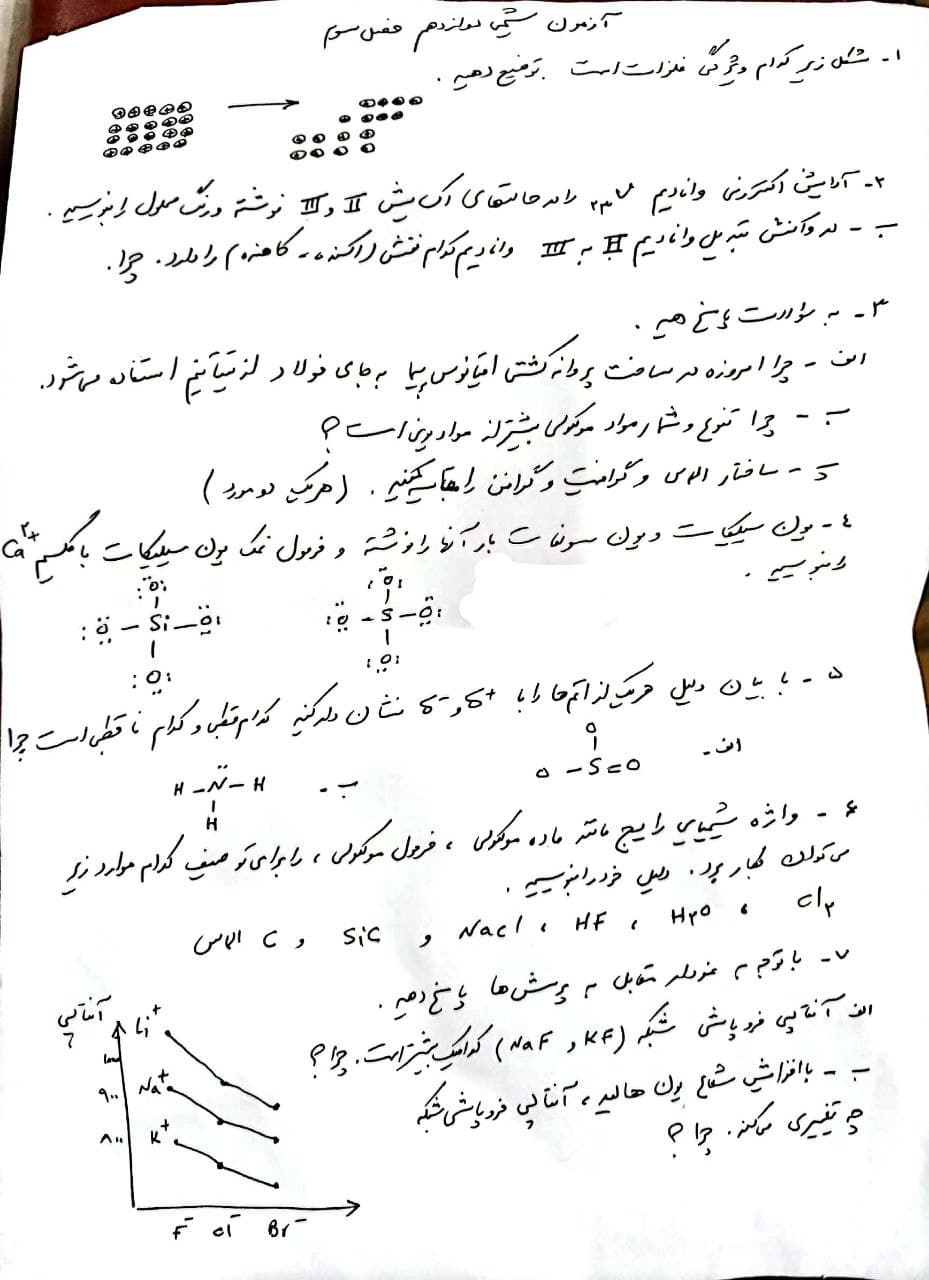 آزمون شیمی دوازدهم فصل سوم
۱- شکل زیر کدام ویژگی فلزات است . توضیح دهید .
۲- آرایش الکترونی وانادیم ₂₃V را در حالتهای اکسایش II و III نوشته و رنگ محلول را بنویسید .
ب - در واکنش تبدیل وانادیم II به III وانادیم کدام نقش (اکسنده - کاهنده) را دارد. چرا.
۳- به سؤالات پاسخ دهید .
الف - چرا امروزه در ساخت پروانه کشتی اقیانوس پیما به جای فولاد از تیتانیم استفاده می‌شود.
ب - چرا تنوع و شمار مواد مولکولی بیشتر از مواد یونی است؟
ج - ساختار الماس و گرافیت و گرافن را مقایسه کنید . (هریک دو مورد)
۴- یون سیلیکات و یون سولفات بار آنها را نوشته و فرمول نمک یون سیلیکات با کلسیم Ca²⁺
را بنویسید .
:Ö: :Ö:
:Ö – Si – Ö: :Ö – S – Ö:
:Ö: :Ö:
۵- با بیان دلیل هریک از اتم‌ها را با δ⁺ و δ⁻ نشان داده کنید کدام قطبی و کدام ناقطبی است چرا
الف- O
O – S = O
ب - H – N̈ – H
H
۶- واژه شیمیایی رایج مانند ماده مولکولی ، فرمول مولکولی ، را برای توصیف کدام موارد زیر
می‌توان بکار برد. دلیل خود را بنویسید .
Cl₂ ، H₂O ، HF ، NaCl و SiC و C الماس
۷- با توجه به نمودار مقابل به پرسش‌ها پاسخ دهید .
الف آنتالپی فروپاشی شبکه (KF و NaF) کدامیک بیشتر است. چرا؟
ب - با افزایش شعاع یون هالید ، آنتالپی فروپاشی شبکه
چه تغییری می‌کند. چرا؟
آنتالپی
Li⁺
۹۰۰ Na⁺
۸۰۰ K⁺
F⁻ Cl⁻ Br⁻